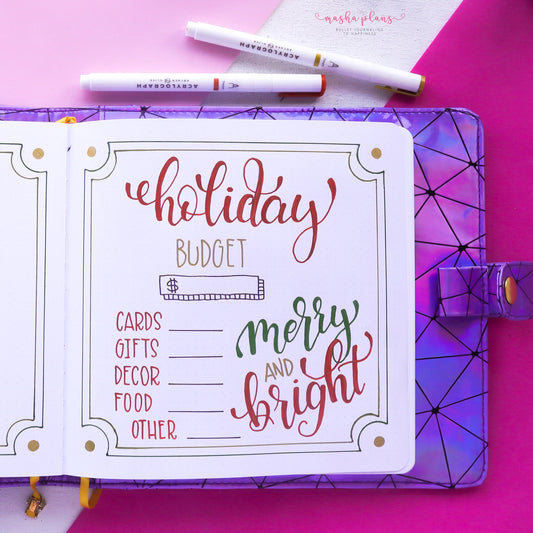 masha plans
BULLET JOURNALING
TO HAPPINESS
ACRYLOGRAPH
ACRYLOGRAPH
holiday
BUDGET
$
CARDS
GIFTS
DECOR
FOOD
OTHER
merry
AND
bright